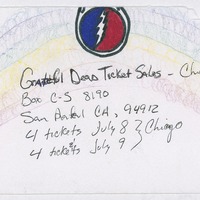 Grateful Dead Ticket Sales - Ch
Box C-S 8190
San Rafael CA, 94912
4 tickets July 8 } Chicago
4 tickets July 9